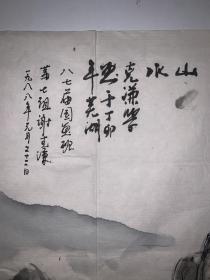 山水
克谦学
画于丁卯
年芜湖
八七届国画班
第七组谢克谦
一九八八年元月二十二日